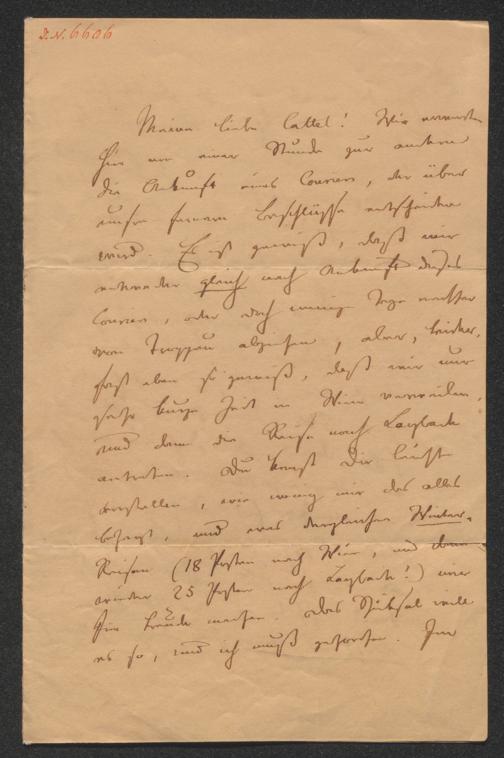 I. N. 6606
Meine liebe Cattel! Wir erwarten
hier von einer Stunde zur andern
die Ankunft eines Couriers, der über
unsre fernern Beschlüsse entscheiden
wird. Es ist gewiß, daß wir
entweder gleich nach Ankunft dieses
Couriers, oder doch wenig Tage nachher
von Troppau abziehen, aber, leider,
fast eben so gewiß, daß wir nur
sehr kurze Zeit in Wien verweilen,
und dann die Reise nach Laybach
antreten. Du kanst Dir leicht
vorstellen, wie wenig mir das alles
behagt, und was dergleichen Winter-
Reisen (18 Posten nach Wien, und dann
wieder 25 Posten nach Laybach!) mir
für Freude machen. Das Schiksal will
es so, und ich muß gehorchen. Im